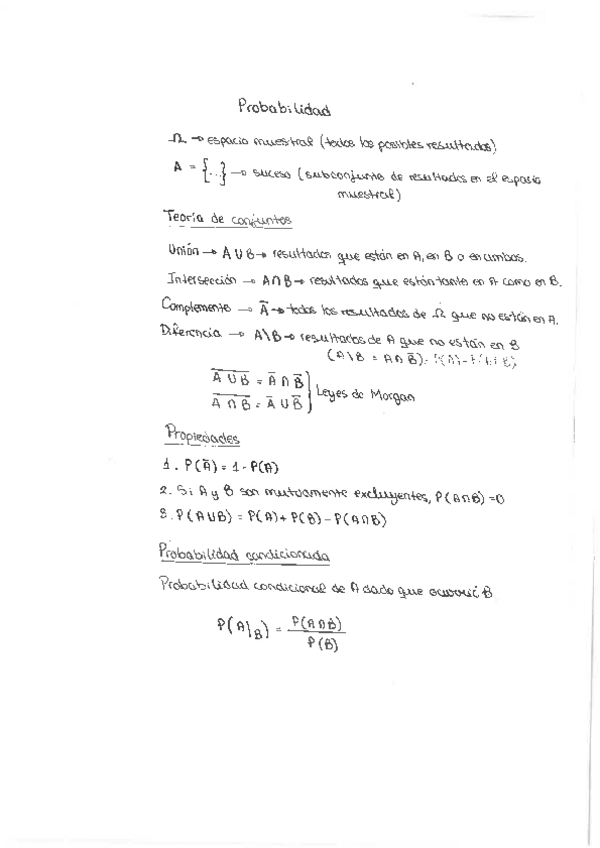 Probabilidad
Ω → espacio muestral (todos los posibles resultados)
A = {...} → suceso (subconjunto de resultados en el espacio
muestral)
Teoría de conjuntos
Unión → A ∪ B → resultados que están en A, en B o en ambos.
Intersección → A ∩ B → resultados que están tanto en A como en B.
Complemento → A̅ → todos los resultados de Ω que no están en A.
Diferencia → A\B → resultados de A que no están en B
(A\B = A ∩ B̅) = P(A) - P(A ∩ B)
\overline{A ∪ B} = A̅ ∩ B̅
\overline{A ∩ B} = A̅ ∪ B̅ } Leyes de Morgan
Propiedades
1. P(A̅) = 1 - P(A)
2. Si A y B son mutuamente excluyentes, P(A ∩ B) = 0
3. P(A ∪ B) = P(A) + P(B) - P(A ∩ B)
Probabilidad condicionada
Probabilidad condicional de A dado que ocurrió B
P(A\B) = P(A ∩ B) / P(B)